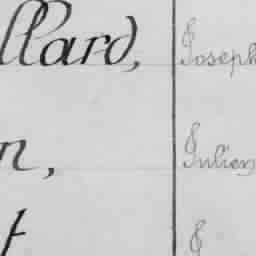 llard, Joseph
n, Julien
t J